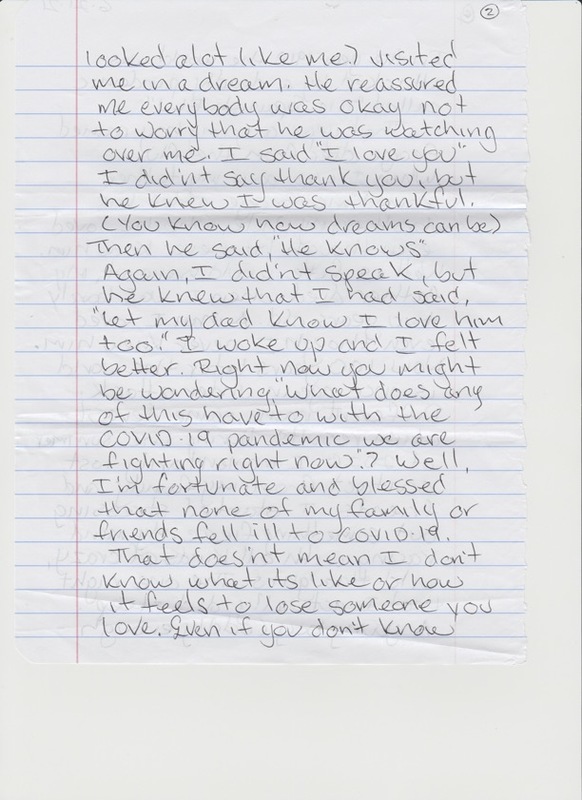 2
looked alot like me.) visited
me in a dream. He reassured
me everybody was okay not
to worry that he was watching
over me. I said "I love you"
I did'nt say thank you, but
he knew I was thankful.
(You know how dreams can be)
Then he said, "He knows".
Again, I did'nt speak, but
he knew that I had said,
"Let my dad know I love him
too." I woke up and I felt
better. Right now you might
be wondering "what does any
of this have to with the
COVID-19 pandemic we are
fighting right now"? Well,
I'm fortunate and blessed
that none of my family or
friends fell ill to COVID-19.
That does'nt mean I don't
know what its like or how
it feels to lose someone you
love. Even if you don't know